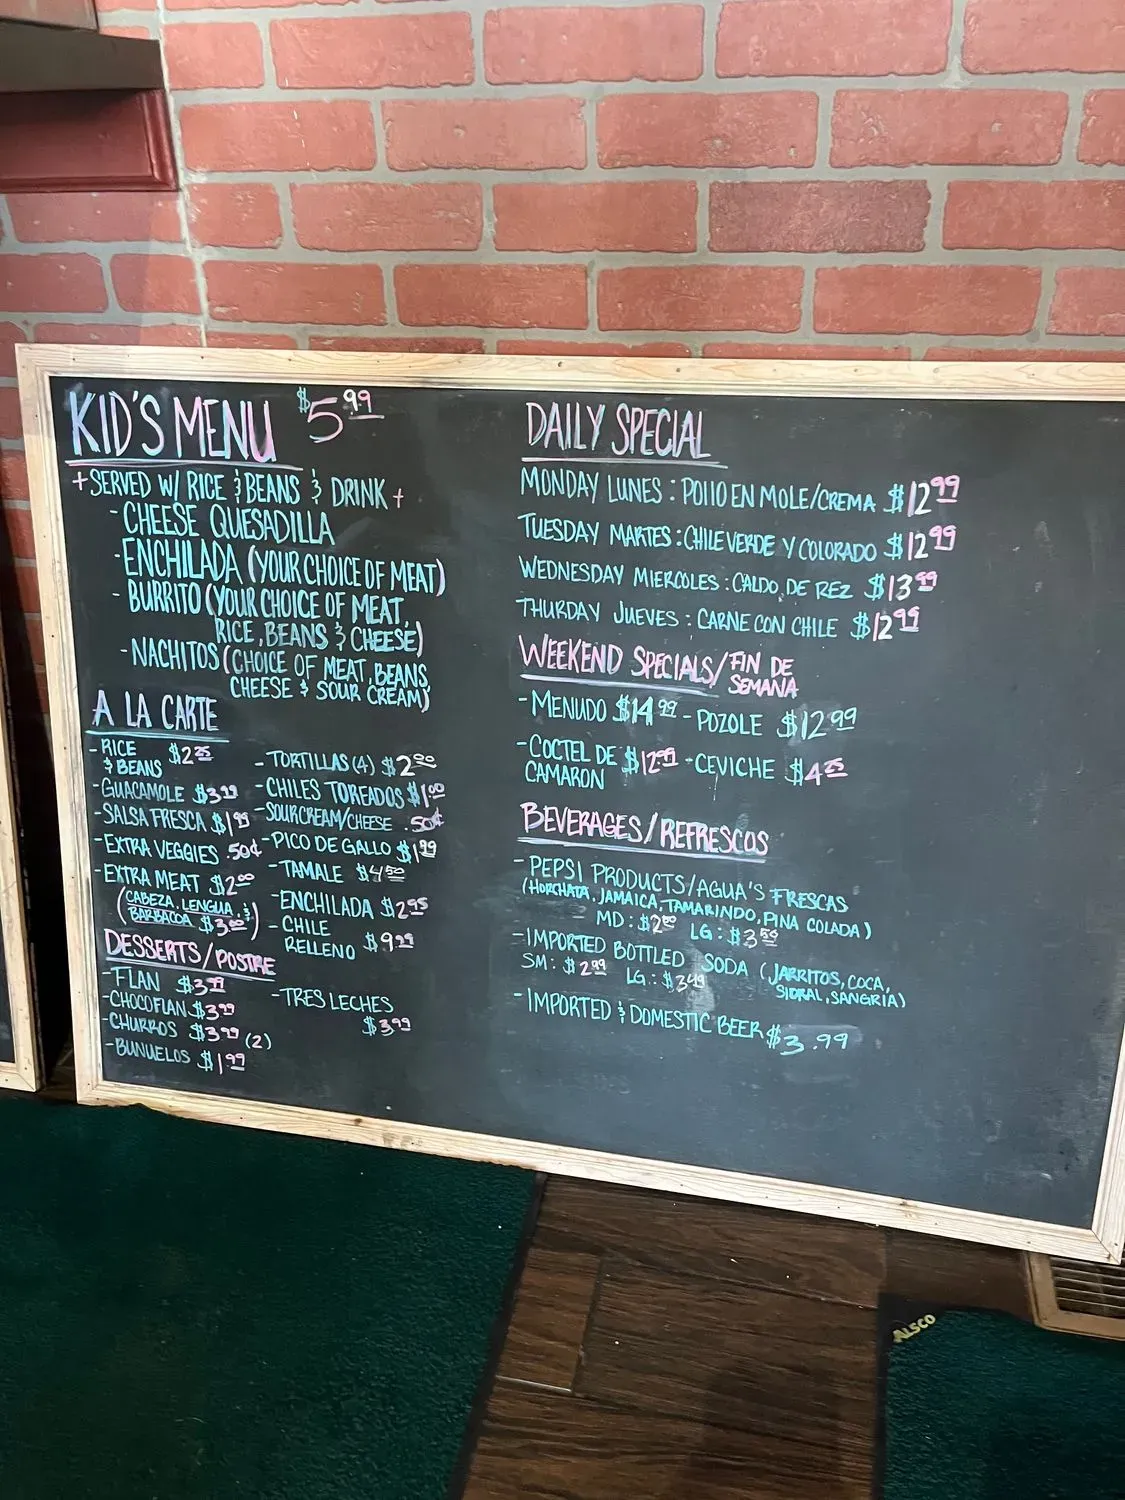 KID'S MENU $5.99
+SERVED W/ RICE & BEANS & DRINK+
- CHEESE QUESADILLA
- ENCHILADA (YOUR CHOICE OF MEAT)
- BURRITO (YOUR CHOICE OF MEAT,
RICE, BEANS & CHEESE)
- NACHITOS (CHOICE OF MEAT, BEANS,
CHEESE & SOUR CREAM)
A LA CARTE
- RICE
& BEANS $2.25
- GUACAMOLE $3.99
- SALSA FRESCA $1.99
- EXTRA VEGGIES .50¢
- EXTRA MEAT $2.00
(CABEZA, LENGUA, &
BARBACOA $3.00)
- TORTILLAS (4) $2.00
- CHILES TOREADOS $1.00
- SOUR CREAM/CHEESE .50¢
- PICO DE GALLO $1.99
- TAMALE $4.50
- ENCHILADA $2.95
- CHILE
RELLENO $9.99
DESSERTS/POSTRE
- FLAN $3.99
- CHOCOFLAN $3.99
- CHURROS $3.99 (2)
- BUNUELOS $1.99
- TRES LECHES
$3.99
DAILY SPECIAL
MONDAY LUNES : POLLO EN MOLE/CREMA $12.99
TUESDAY MARTES : CHILE VERDE Y COLORADO $12.99
WEDNESDAY MIERCOLES : CALDO DE REZ $13.99
THURDAY JUEVES : CARNE CON CHILE $12.99
WEEKEND SPECIALS/FIN DE
SEMANA
- MENUDO $14.99 - POZOLE $12.99
- COCTEL DE
CAMARON $12.99 - CEVICHE $4.25
BEVERAGES/REFRESCOS
- PEPSI PRODUCTS/AGUA'S FRESCAS
(HORCHATA, JAMAICA, TAMARINDO, PINA COLADA)
MD: $2.50 LG: $3.50
- IMPORTED BOTTLED SODA (JARRITOS, COCA,
SIDRAL, SANGRIA)
SM: $2.99 LG: $3.49
- IMPORTED & DOMESTIC BEER $3.99
ALSCO